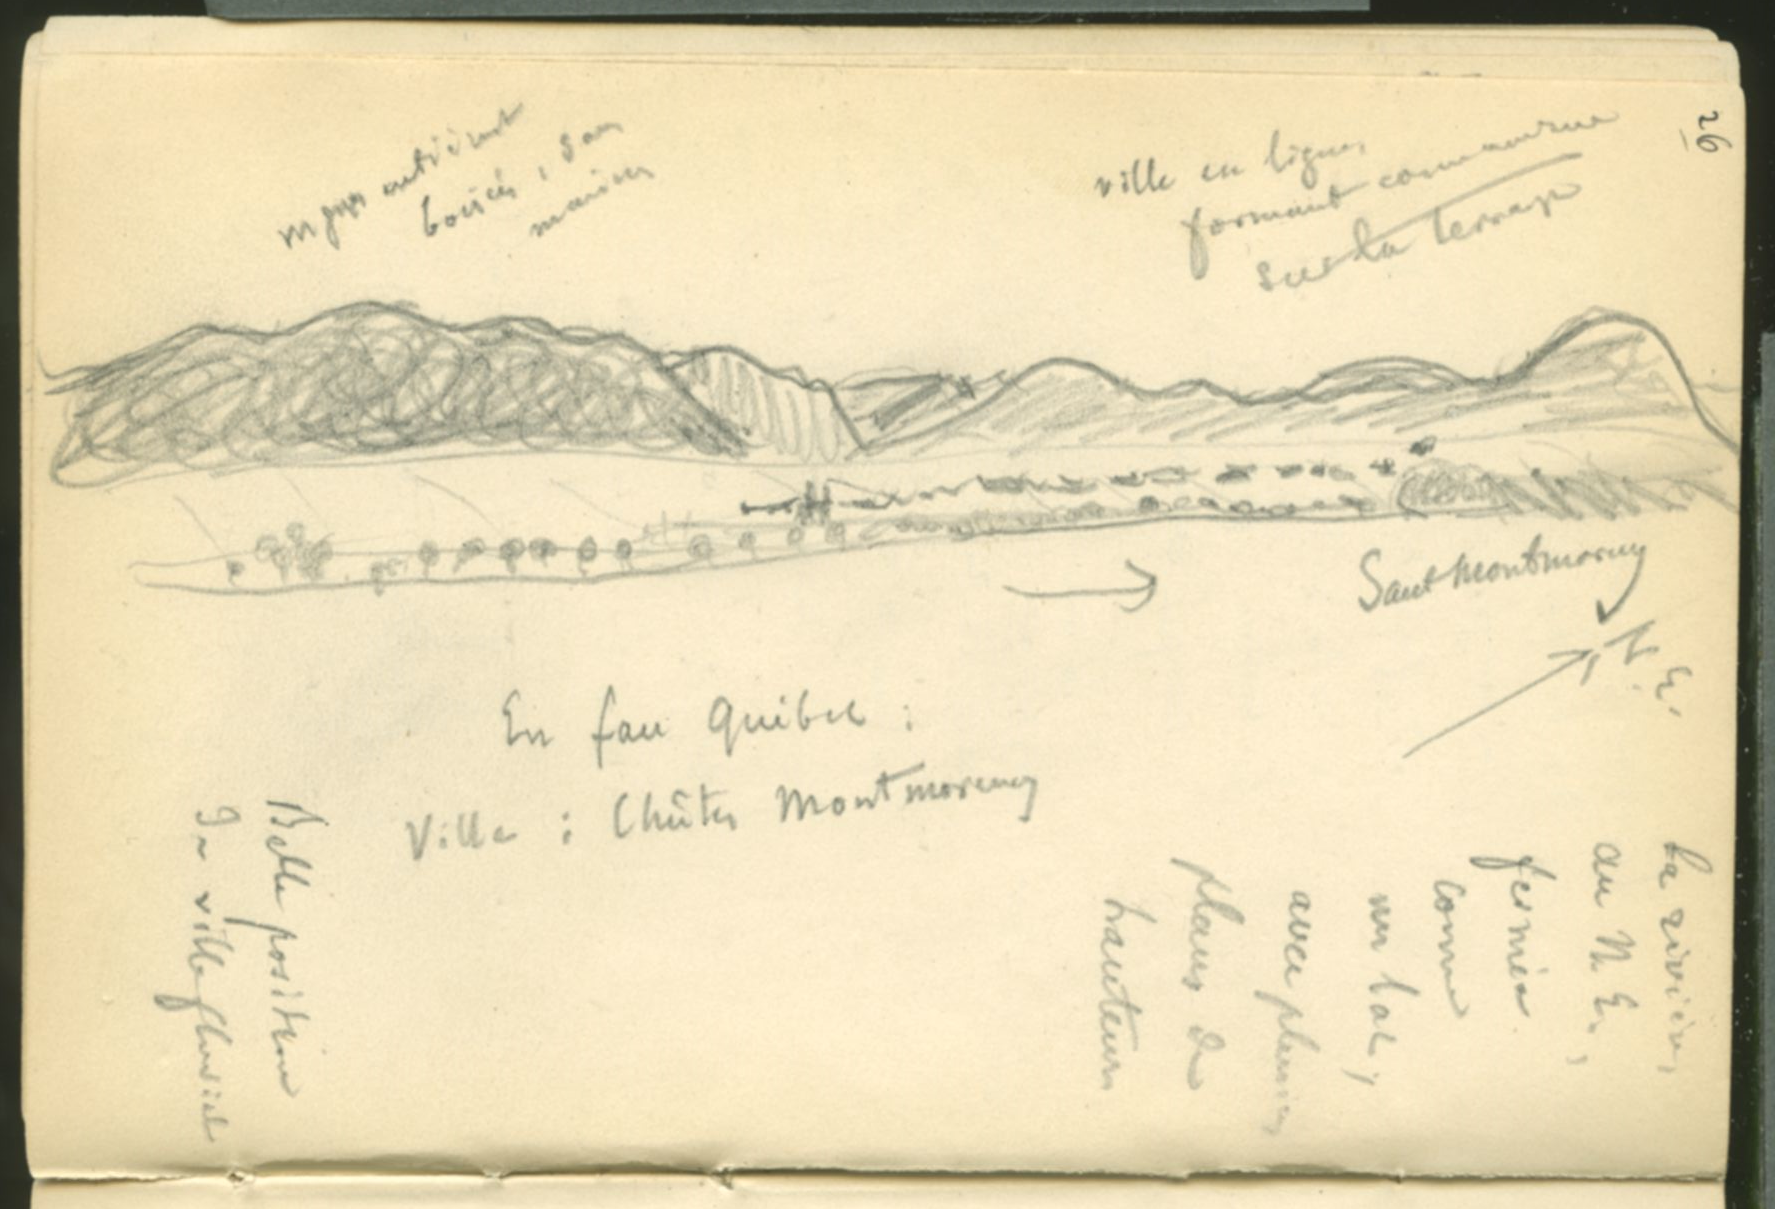 26
entièrmt
boisées, sans
maisons
ville en ligne,
formant comme une
sur la terrasse
Saut Montmorency
N. E.
En face Québec :
Ville : Chûtes Montmorency
La rivière,
au N. E.,
fermée
comme
un lac,
avec plusieurs
plans de
hauteurs
Belle position
De ville fluviale